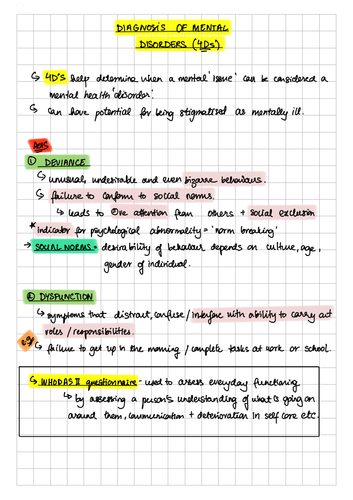 DIAGNOSIS OF MENTAL
DISORDERS (4Ds')
↳ 4D'S help determine when a mental 'issue' can be considered a
mental health 'disorder'.
↳ can have potential for being stigmatised as mentally ill.
① DEVIANCE
↳ unusual, undesirable and even bizarre behaviours.
↳ failure to conform to social norms.
↳ leads to ⊖ve attention from others + social exclusion
* indicator for psychological abnormality = 'norm breaking'
→ SOCIAL NORMS = desirability of behaviour depends on culture, age,
gender of individual.
② DYSFUNCTION
↳ symptoms that distract, confuse / interfere with ability to carry out
roles / responsibilities.
e.g. ↳ failure to get up in the morning / complete tasks at work or school.
↳ WHODAS II questionnaire - used to assess everyday functioning
↳ by assessing a person's understanding of what is going on
around them, communication + deterioration in self care etc.